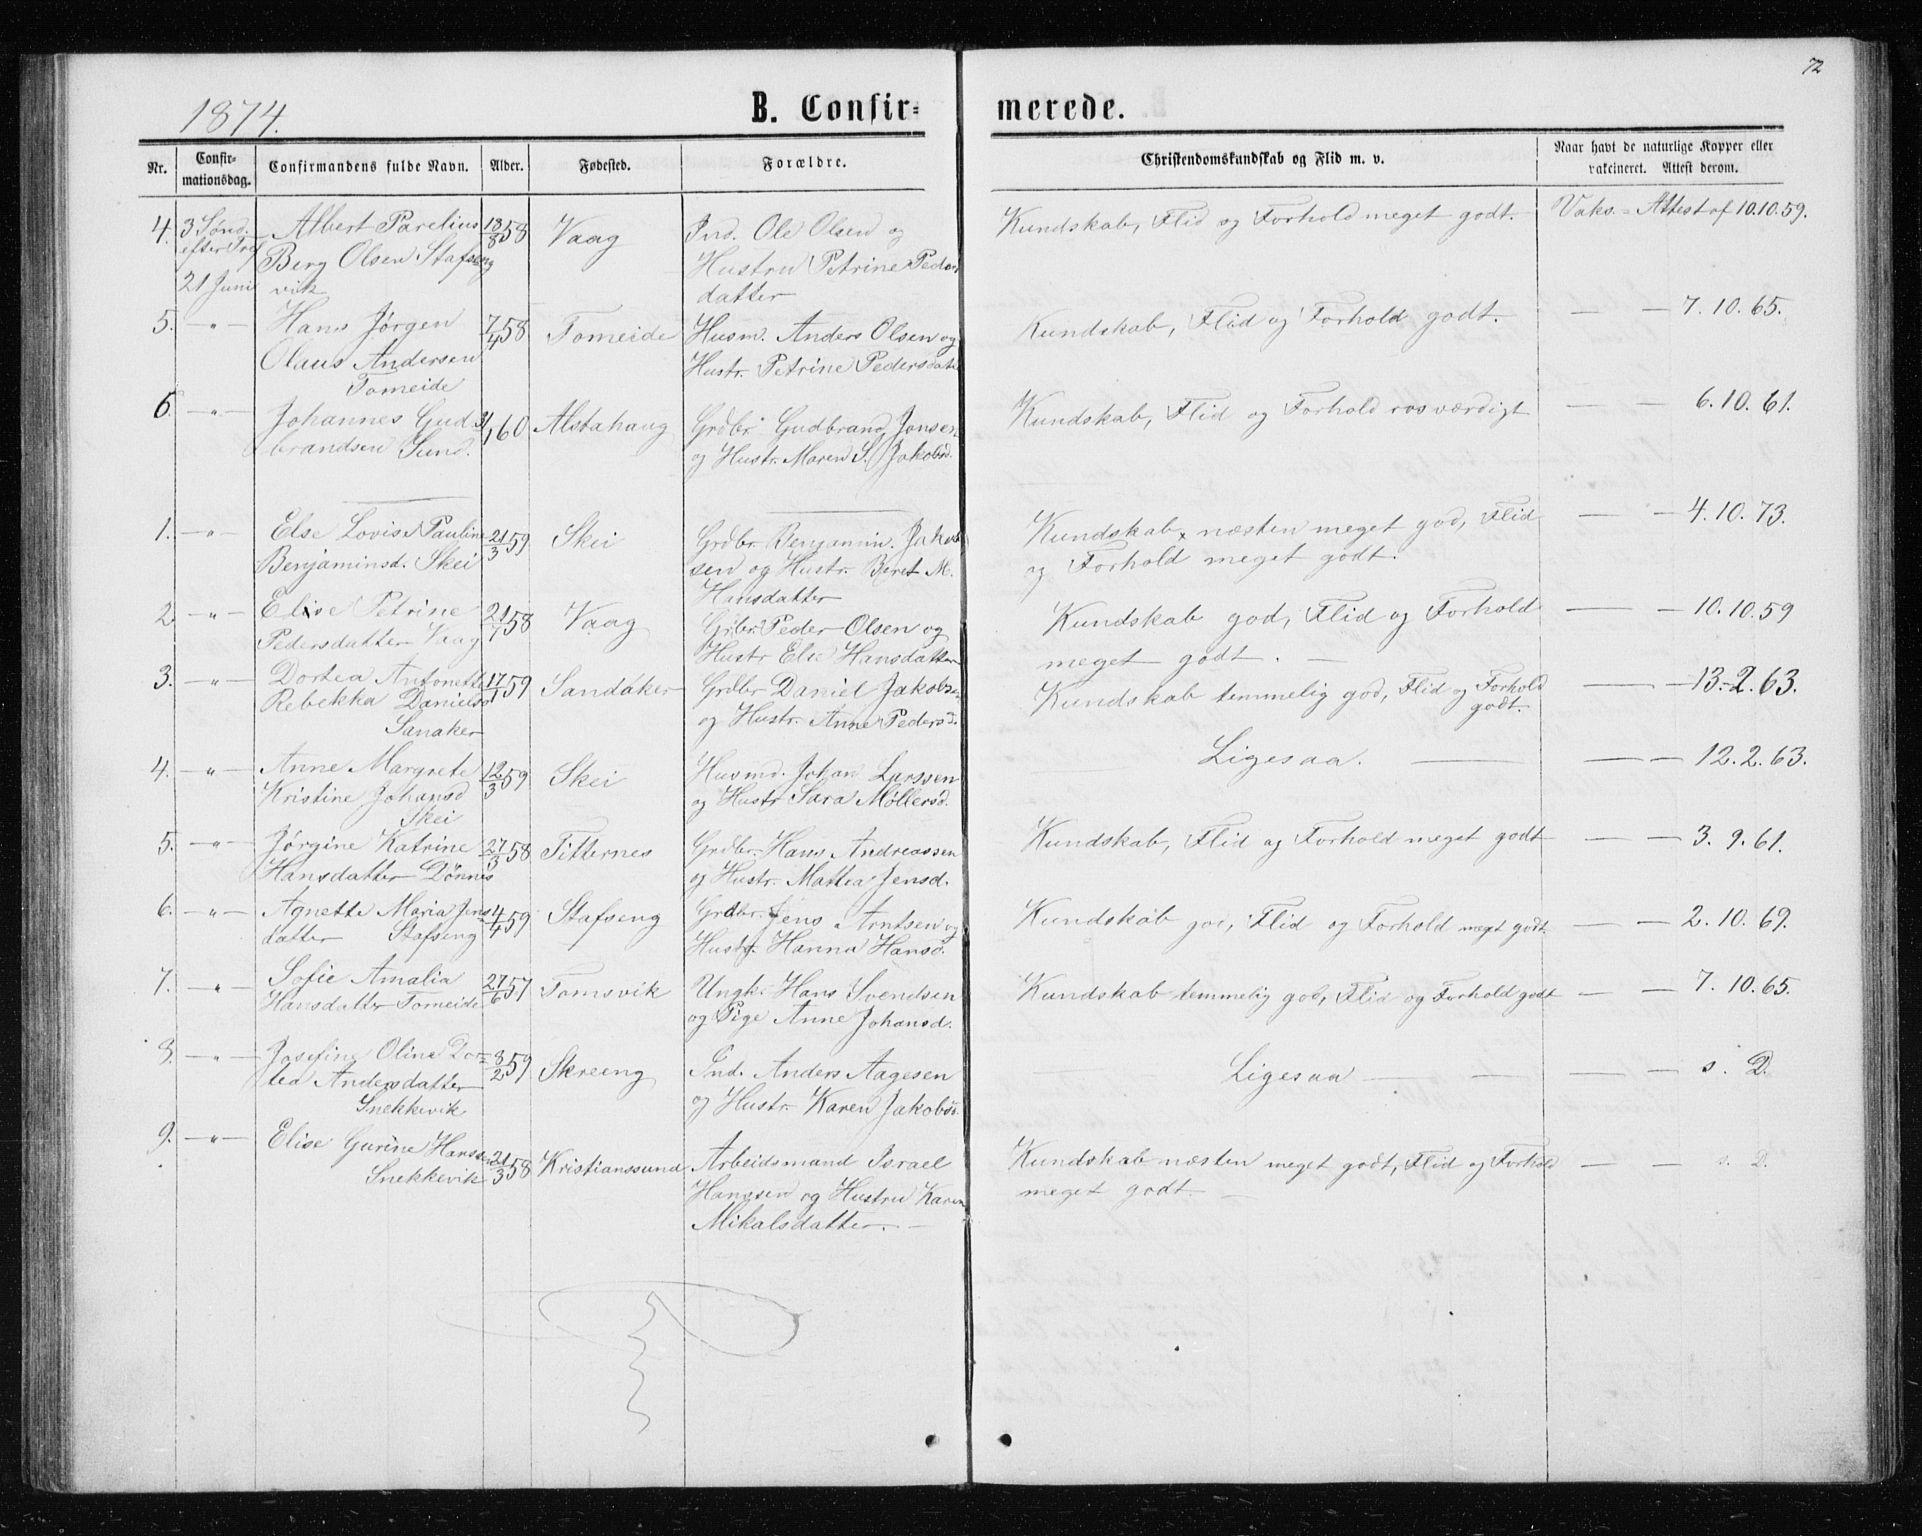 72
1874.
B. Confir=
merede.
Nr.
Confir-
mationsdag.
Confirmandens fulde Navn.
Alder.
Fødested.
Forældre.
Christendomskundskab og Flid m. v.
Naar havt de naturlige Kopper eller
vakcineret. Attest derom.
4. 3 Sønd. Albert Parelius 18/8 58 Vaag Ind. Ole Olsen og Kundskab, Flid og Forhold meget godt. Vaks. = Attest af 10.10.59.
efter Tref Berg Olsen Stafseng Hustru Petrine Peders
21 Juni vik datter
5. -"- Hans Jørgen 7/4 58 Tomeide Husm. Anders Olsen og Kundskab, Flid og Forhold godt. — — 7. 10. 65.
Olaus Andersen Hustr. Petrine Pedersdatr
Tomeide
6. -"- Johannes Gud 3/1 60 Alstahaug Grdbr. Gudbrand Jonsen Kundskab, Flid og Forhold rosværdigt — — 6. 10. 61.
brandsen Sund. og Hustr. Maren S. Jakobsd.
1. -"- Else Lovise Pauline 21/3 59 Skei Grdbr. Benjamin Jakob Kundskab næsten meget god, Flid — — 4. 10. 73.
Benjaminsd. Skei sen og Hustr. Beret M. og Forhold meget godt.
Hansdatter
2 -"- Elise Petrine 21/7 58 Vaag Grbr. Peder Olsen og Kundskab god, Flid og Forhold — — 10. 10. 59
Pedersdatter Vaag Hustr Else Hansdatter meget godt. —
3. -"- Dortea Antonette 17/1 59 Sandåker Grdbr Daniel Jakobsen Kundskab temmelig god, Flid og Forhold — — 13. 2. 63.
Rebekka Danielsd og Hustr. Anne Pedersd. godt.
Sanaker
4. -"- Anne Margrete 12/3 59 Skei Husmd. Johan Larssen Ligesaa. — — — 12. 2. 63.
Kristine Johansd og Hustr Sara Møllersd.
Skei
5. -"- Jørgine Katrine 27/3 58 Titternes Grdbr. Hans Andreassen Kundskab, Flid og Forhold meget godt — — 3. 9. 61.
Hansdatter Dønnes og Hustr. Mattea Jensd.
6. -"- Agnette Maria Jens 4/4 59 Stafseng Grdbr. Jens Arntsen og Kundskab god, Flid og Forhold meget godt. — — 2. 10. 69.
datter Stafseng Hustr. Hanna Hansd.
7. -"- Sofie Amalia 27/6 57 Tomsvik Ungk. Hans Svendsen Kundskab temmelig god, Flid og Forhold godt — — 7. 10. 65.
Hansdatter Tomeide og Pige Anne Johansd.
8. -"- Josefine Oline Dor= 8/2 59 Skreeng Ind. Anders Aagesen Ligesaa — — — — s. D.
tea Andersdatter og Hustr. Karen Jakobsd.
Snekkevik
9. -"- Elise Gurine Hanssen 21/3 58 Kristianssund Arbeidsmand Israel Kundskab næsten meget godt, Flid og Forhold — — s. D.
Snekkevik Hanssen og Hustru Karen meget godt. —
Mikalsdatter. —